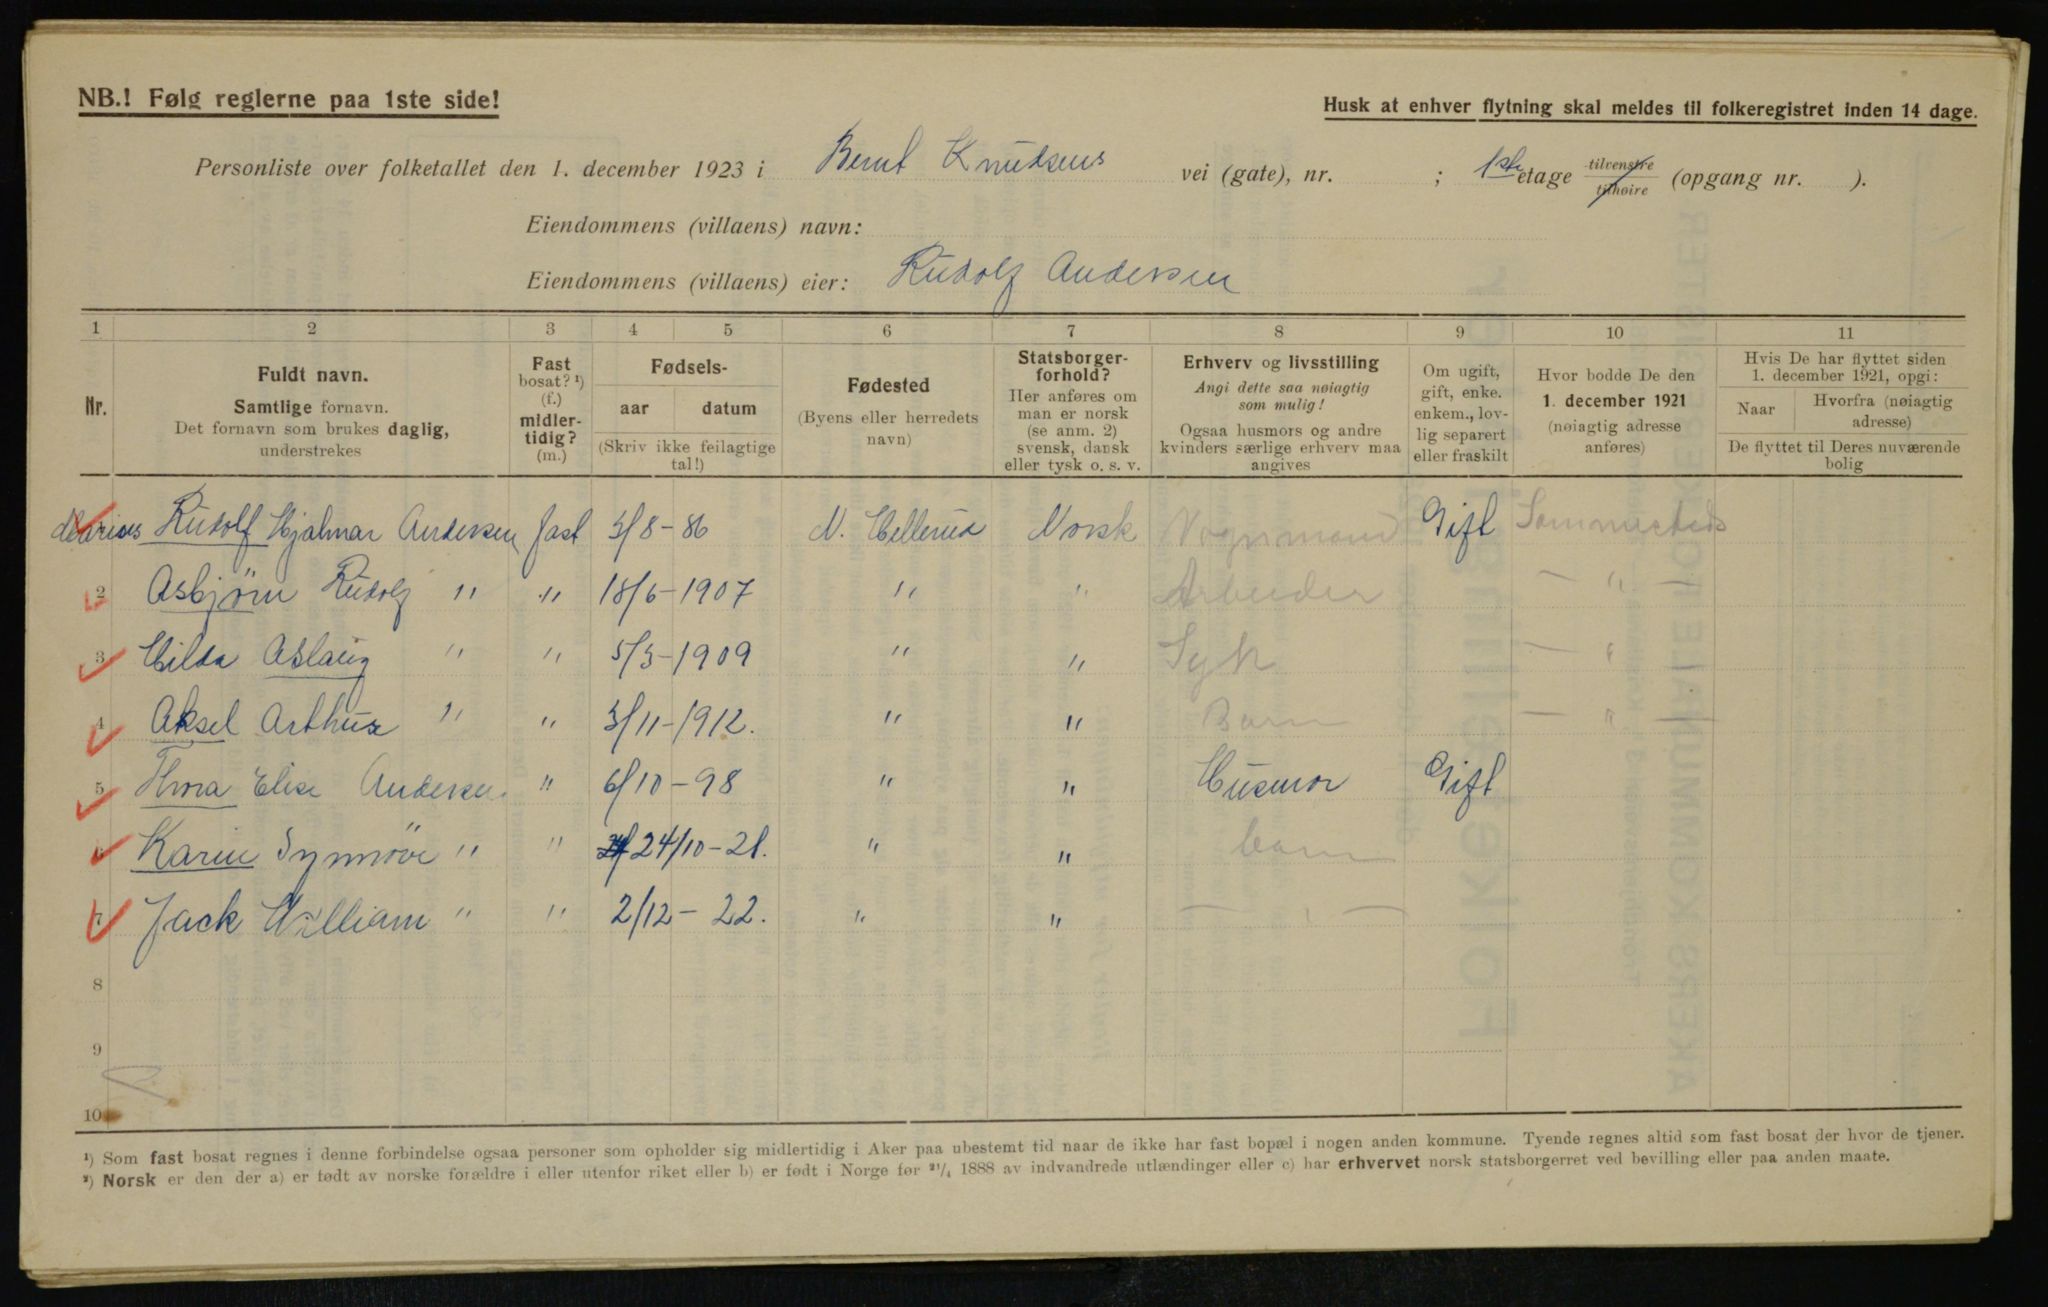 NB.! Følg reglerne paa 1ste side!
Husk at enhver flytning skal meldes til folkeregistret inden 14 dage.
Personliste over folketallet den 1. december 1923 i Bernt Knudsens vei (gate), nr. ; 1ste etage tilvenstre tilhøire (opgang nr. ).
Eiendommens (villaens) navn:
Eiendommens (villaens) eier: Rudolf Andersen
1 2 3 4 5 6 7 8 9 10 11
Nr.
Fuldt navn.
Samtlige fornavn.
Det fornavn som brukes daglig,
understrekes
Fast
bosat? ¹)
(f.)
midler-
tidig?
(m.)
Fødsels-
aar datum
(Skriv ikke feilagtige
tal!)
Fødested
(Byens eller herredets
navn)
Statsborger-
forhold?
Her anføres om
man er norsk
(se anm. 2)
svensk, dansk
eller tysk o. s. v.
Erhverv og livsstilling
Angi dette saa nøiagtig
som mulig!
Ogsaa husmors og andre
kvinders særlige erhverv maa
angives
Om ugift,
gift, enke.
enkem., lov-
lig separert
eller fraskilt
Hvor bodde De den
1. december 1921
(nøiagtig adresse
anføres)
Hvis De har flyttet siden
1. december 1921, opgi:
Naar
Hvorfra (nøiagtig
adresse)
De flyttet til Deres nuværende
bolig
Marius Rudolf Hjalmar Andersen fast 3/8-86 N. Hellerud Norsk Vognmand Gift Sammesteds
2 Asbjörn Rudolf " " 18/6-1907 " " Arbeider — " —
3 Hilda Aslaug " " 5/3-1909 " " Syk — "
4 Aksel Arthur " " 3/11-1912. " " Barn — " —
5 Thora Elise Andersen " 6/10-98 " " Husmor Gift
6 Karin Synnöve " " 24/10-21. " " barn
7 Jack William " " 2/12-22. " " — " —
8
9
10
¹) Som fast bosat regnes i denne forbindelse ogsaa personer som opholder sig midlertidig i Aker paa ubestemt tid naar de ikke har fast bopæl i nogen anden kommune. Tyende regnes altid som fast bosat der hvor de tjener.
²) Norsk er den der a) er født av norske forældre i eller utenfor riket eller b) er født i Norge før ²¹/₄ 1888 av indvandrede utlændinger eller c) har erhvervet norsk statsborgerret ved bevilling eller paa anden maate.